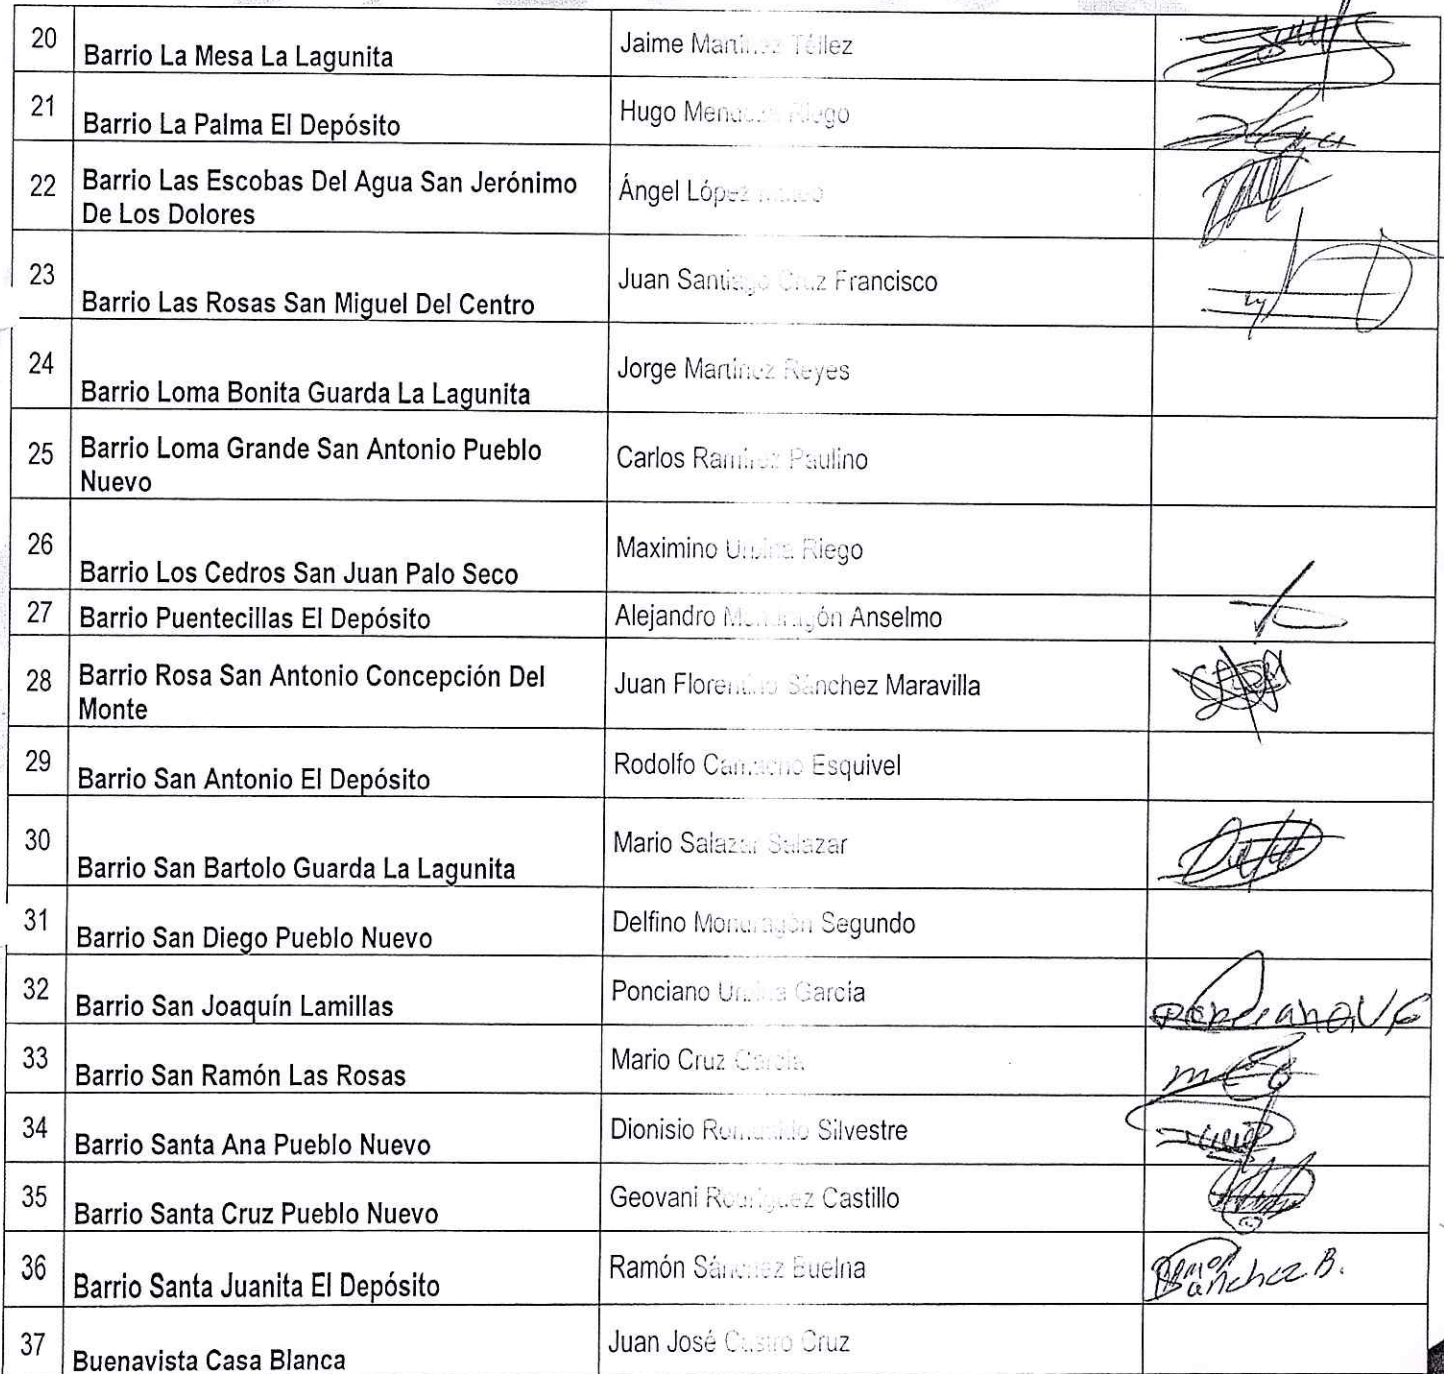 20 Barrio La Mesa La Lagunita Jaime Martínez Téllez
21 Barrio La Palma El Depósito Hugo Mendoza Riego
22 Barrio Las Escobas Del Agua San Jerónimo De Los Dolores Ángel López
23 Barrio Las Rosas San Miguel Del Centro Juan Santiago Cruz Francisco
24 Barrio Loma Bonita Guarda La Lagunita Jorge Martínez Reyes
25 Barrio Loma Grande San Antonio Pueblo Nuevo Carlos Ramírez Paulino
26 Barrio Los Cedros San Juan Palo Seco Maximino Urbina Riego
27 Barrio Puentecillas El Depósito Alejandro Mondragón Anselmo
28 Barrio Rosa San Antonio Concepción Del Monte Juan Florentino Sánchez Maravilla
29 Barrio San Antonio El Depósito Rodolfo Camacho Esquivel
30 Barrio San Bartolo Guarda La Lagunita Mario Salazar Salazar
31 Barrio San Diego Pueblo Nuevo Delfino Mondragón Segundo
32 Barrio San Joaquín Lamillas Ponciano Urbina García
33 Barrio San Ramón Las Rosas Mario Cruz García
34 Barrio Santa Ana Pueblo Nuevo Dionisio Romualdo Silvestre
35 Barrio Santa Cruz Pueblo Nuevo Geovani Rodríguez Castillo
36 Barrio Santa Juanita El Depósito Ramón Sánchez Buelna Ramon Sanchez B.
37 Buenavista Casa Blanca Juan José Castro Cruz